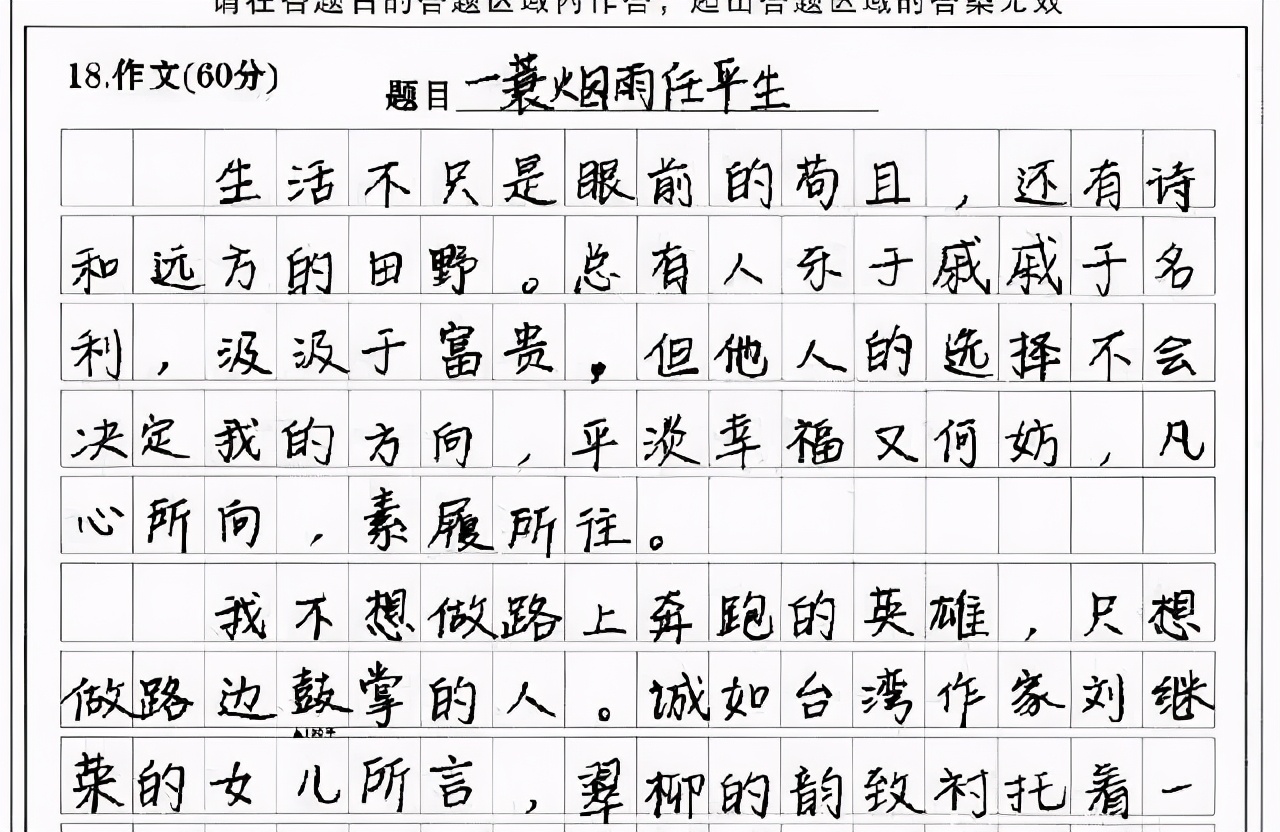 请在各题目的答题区域内作答，超出答题区域的答案无效
18.作文(60分)
题目 一蓑烟雨任平生
生活不只是眼前的苟且，还有诗
和远方的田野。总有人乐于戚戚于名
利，汲汲于富贵，但他人的选择不会
决定我的方向，平淡幸福又何妨，凡
心所向，素履所往。
我不想做路上奔跑的英雄，只想
做路边鼓掌的人。诚如台湾作家刘继
荣的女儿所言，翠柳的韵致衬托着一